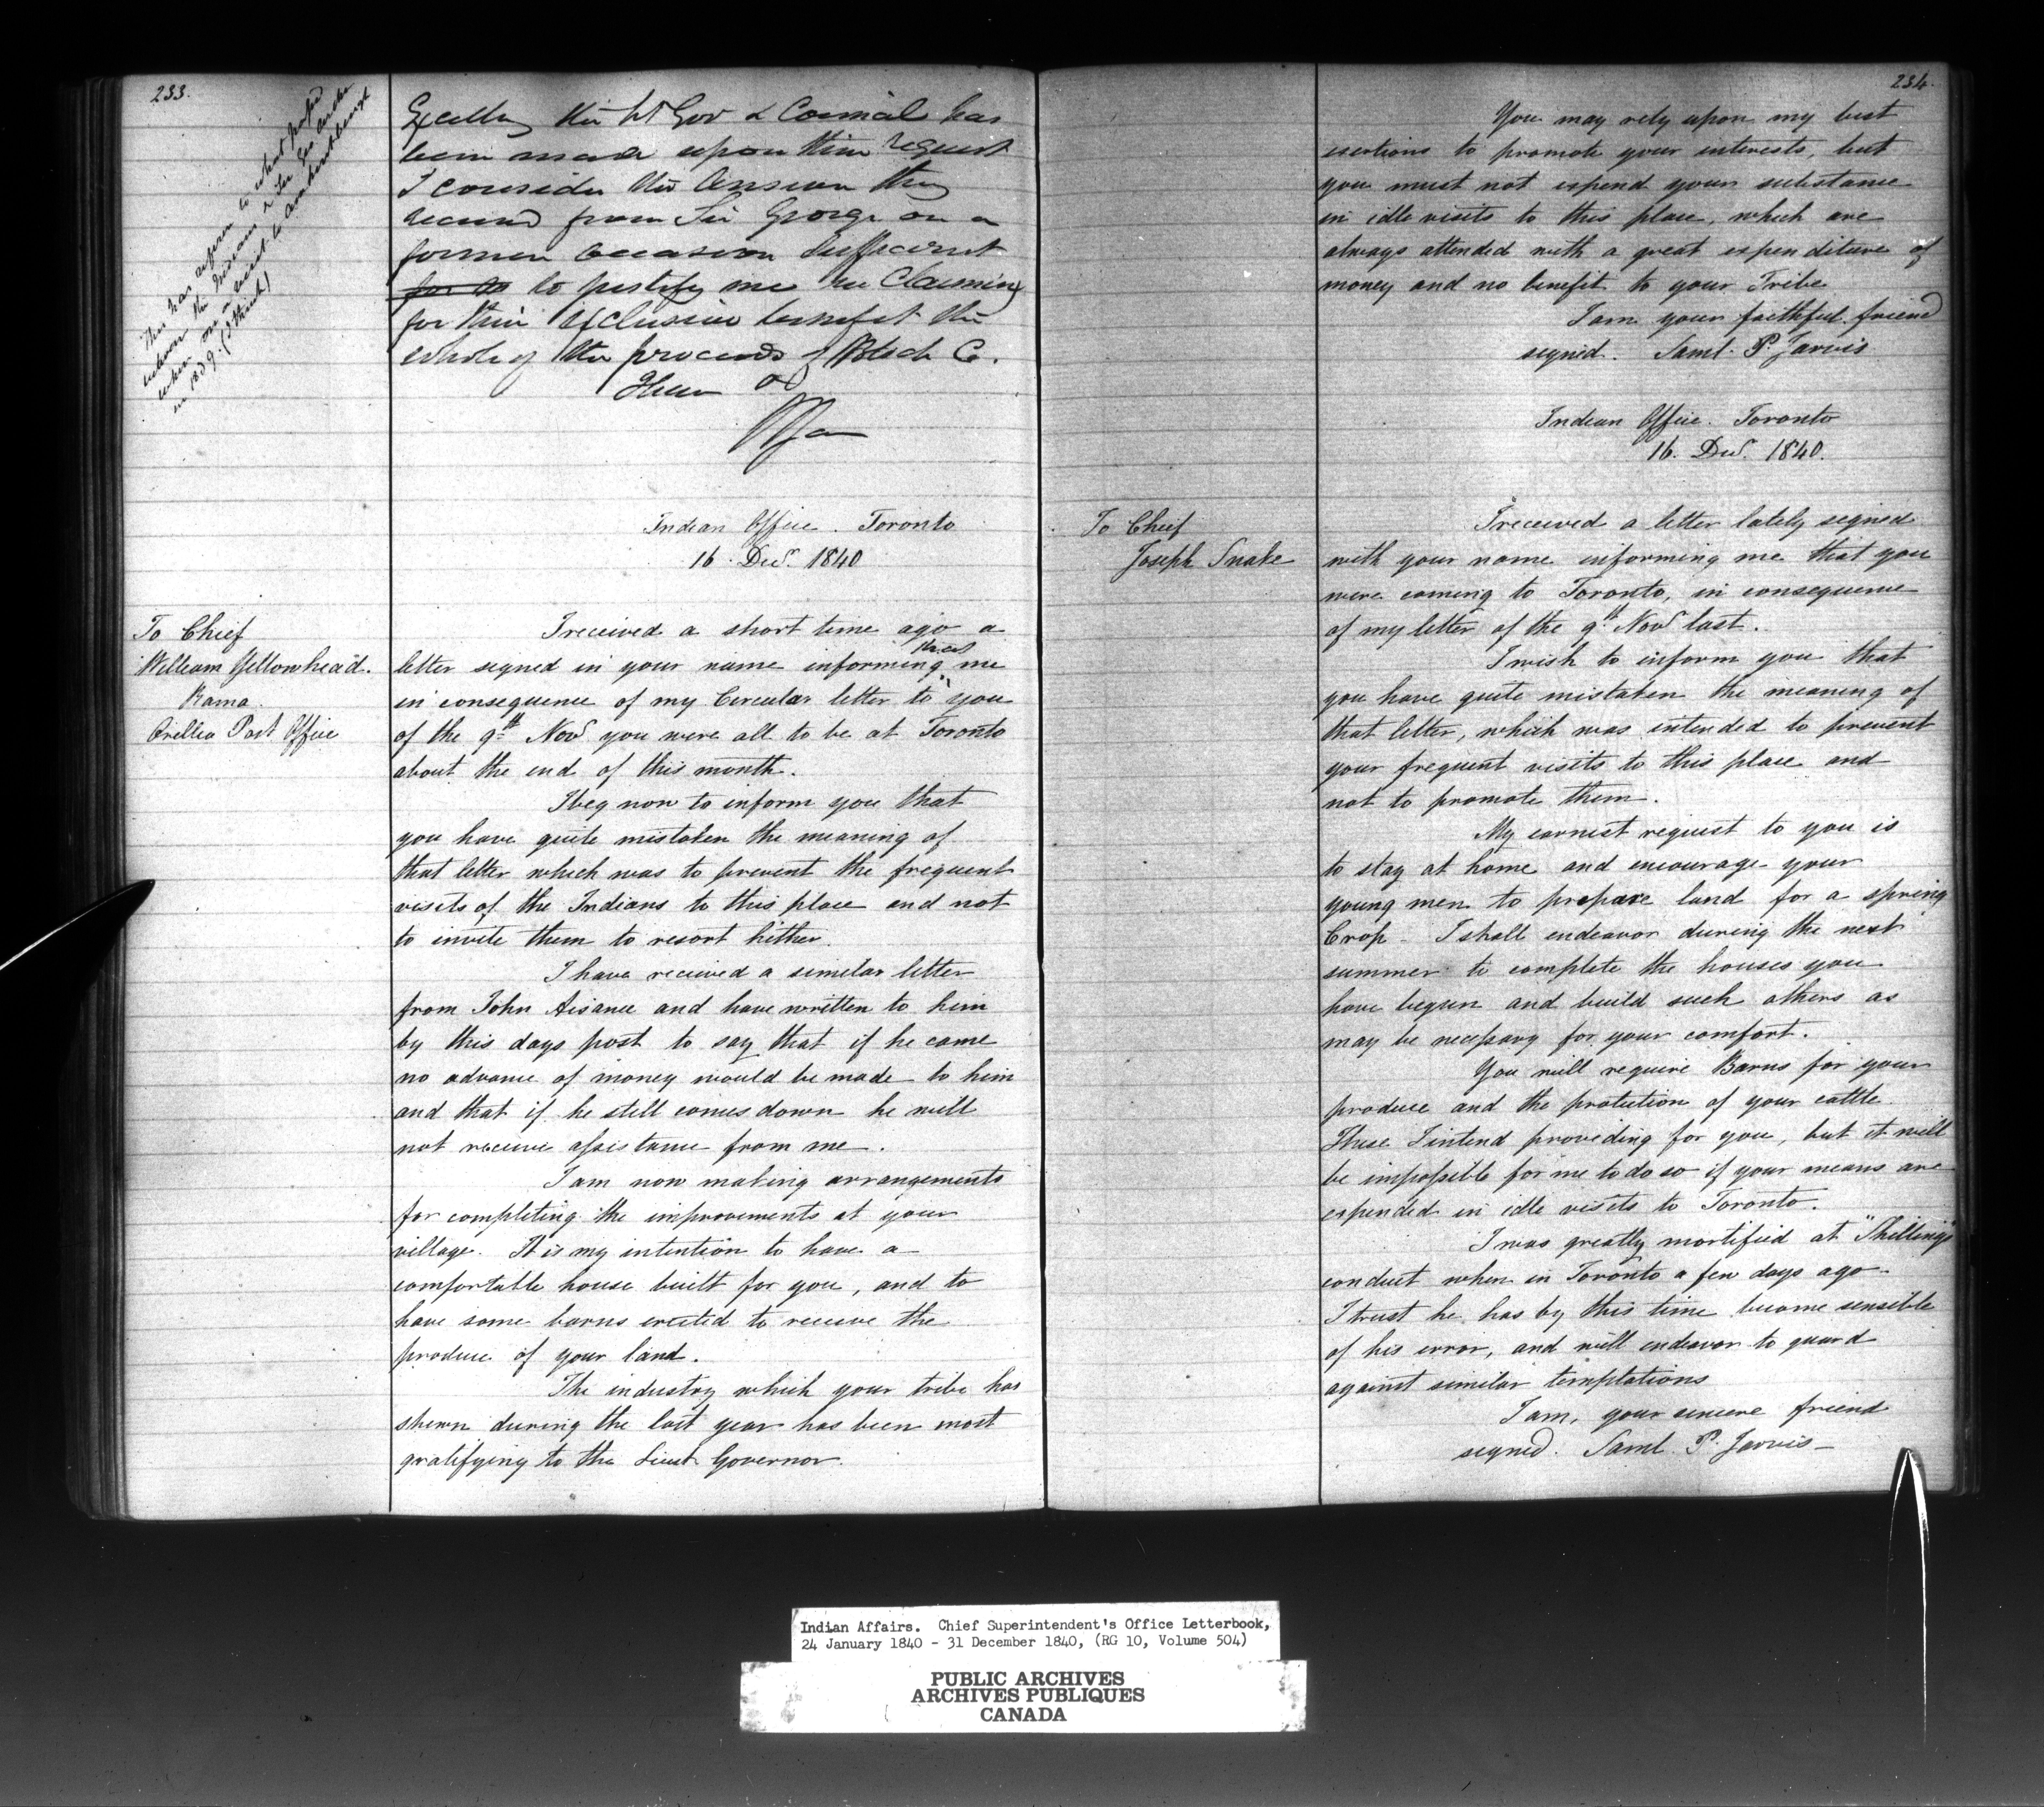 233.
This has reference to what passed
between the Indians & Sir Geo Arthur
when on a visit to Amherstburgh
in 1839. (I think)
Excellency the Lt Gov & Council has
been made upon their request
I consider the answer they
received from Sir George on a
former occasion sufficient
for to to justify me in claiming
for their exclusive benefit the
whole of the proceeds of Block C.
I have
Indian Office. Toronto
16. Decr. 1840
To Chief
William Yellowhead.
Rama.
Orillia Post Office
I received a short time ago a
letter signed in your name informing me that
in consequence of my Circular letter to you
of the 9th Novr you were all to be at Toronto
about the end of this month.
I beg now to inform you that
you have quite mistaken the meaning of
that letter which was to prevent the frequent
visits of the Indians to this place and not
to invite them to resort hither.
I have received a similar letter
from John Aisance and have written to him
by this days post to say that if he came
no advance of money would be made to him
and that if he still comes down he will
not receive assistance from me.
I am now making arrangements
for completing the improvements at your
village. It is my intention to have a
comfortable house built for you, and to
have some barns erected to receive the
produce of your land.
The industry which your tribe has
shewn during the last year has been most
gratifying to the Lieut Governor.
234.
You may rely upon my best
exertions to promote your interests, but
you must not expend your substance
in idle visits to this place, which are
always attended with a great expenditure of
money and no benefit to your Tribe
I am your faithful friend
signed. Saml. P. Jarvis
Indian Office. Toronto
16. Decr. 1840.
To Chief
Joseph Snake
I received a letter lately signed
with your name informing me that you
were coming to Toronto, in consequence
of my letter of the 9th Novr last.
I wish to inform you that
you have quite mistaken the meaning of
that letter, which was intended to prevent
your frequent visits to this place and
not to promote them.
My earnest request to you is
to stay at home and encourage your
young men to prepare land for a spring
Crop - I shall endeavor during the next
summer to complete the houses you
have begun and build such others as
may be necessary for your comfort.
You will require Barns for your
produce and the protection of your cattle.
These I intend providing for you, but it will
be impossible for me to do so if your means are
expended in idle visits to Toronto.
I was greatly mortified at "Shilling's"
conduct when in Toronto a few days ago -
I trust he has by this time become sensible
of his error, and will endeavor to guard
against similar temptations
I am, your sincere friend
signed. Saml. P. Jarvis -
Indian Affairs. Chief Superintendent's Office Letterbook,
24 January 1840 - 31 December 1840, (RG 10, Volume 504)
PUBLIC ARCHIVES
ARCHIVES PUBLIQUES
CANADA